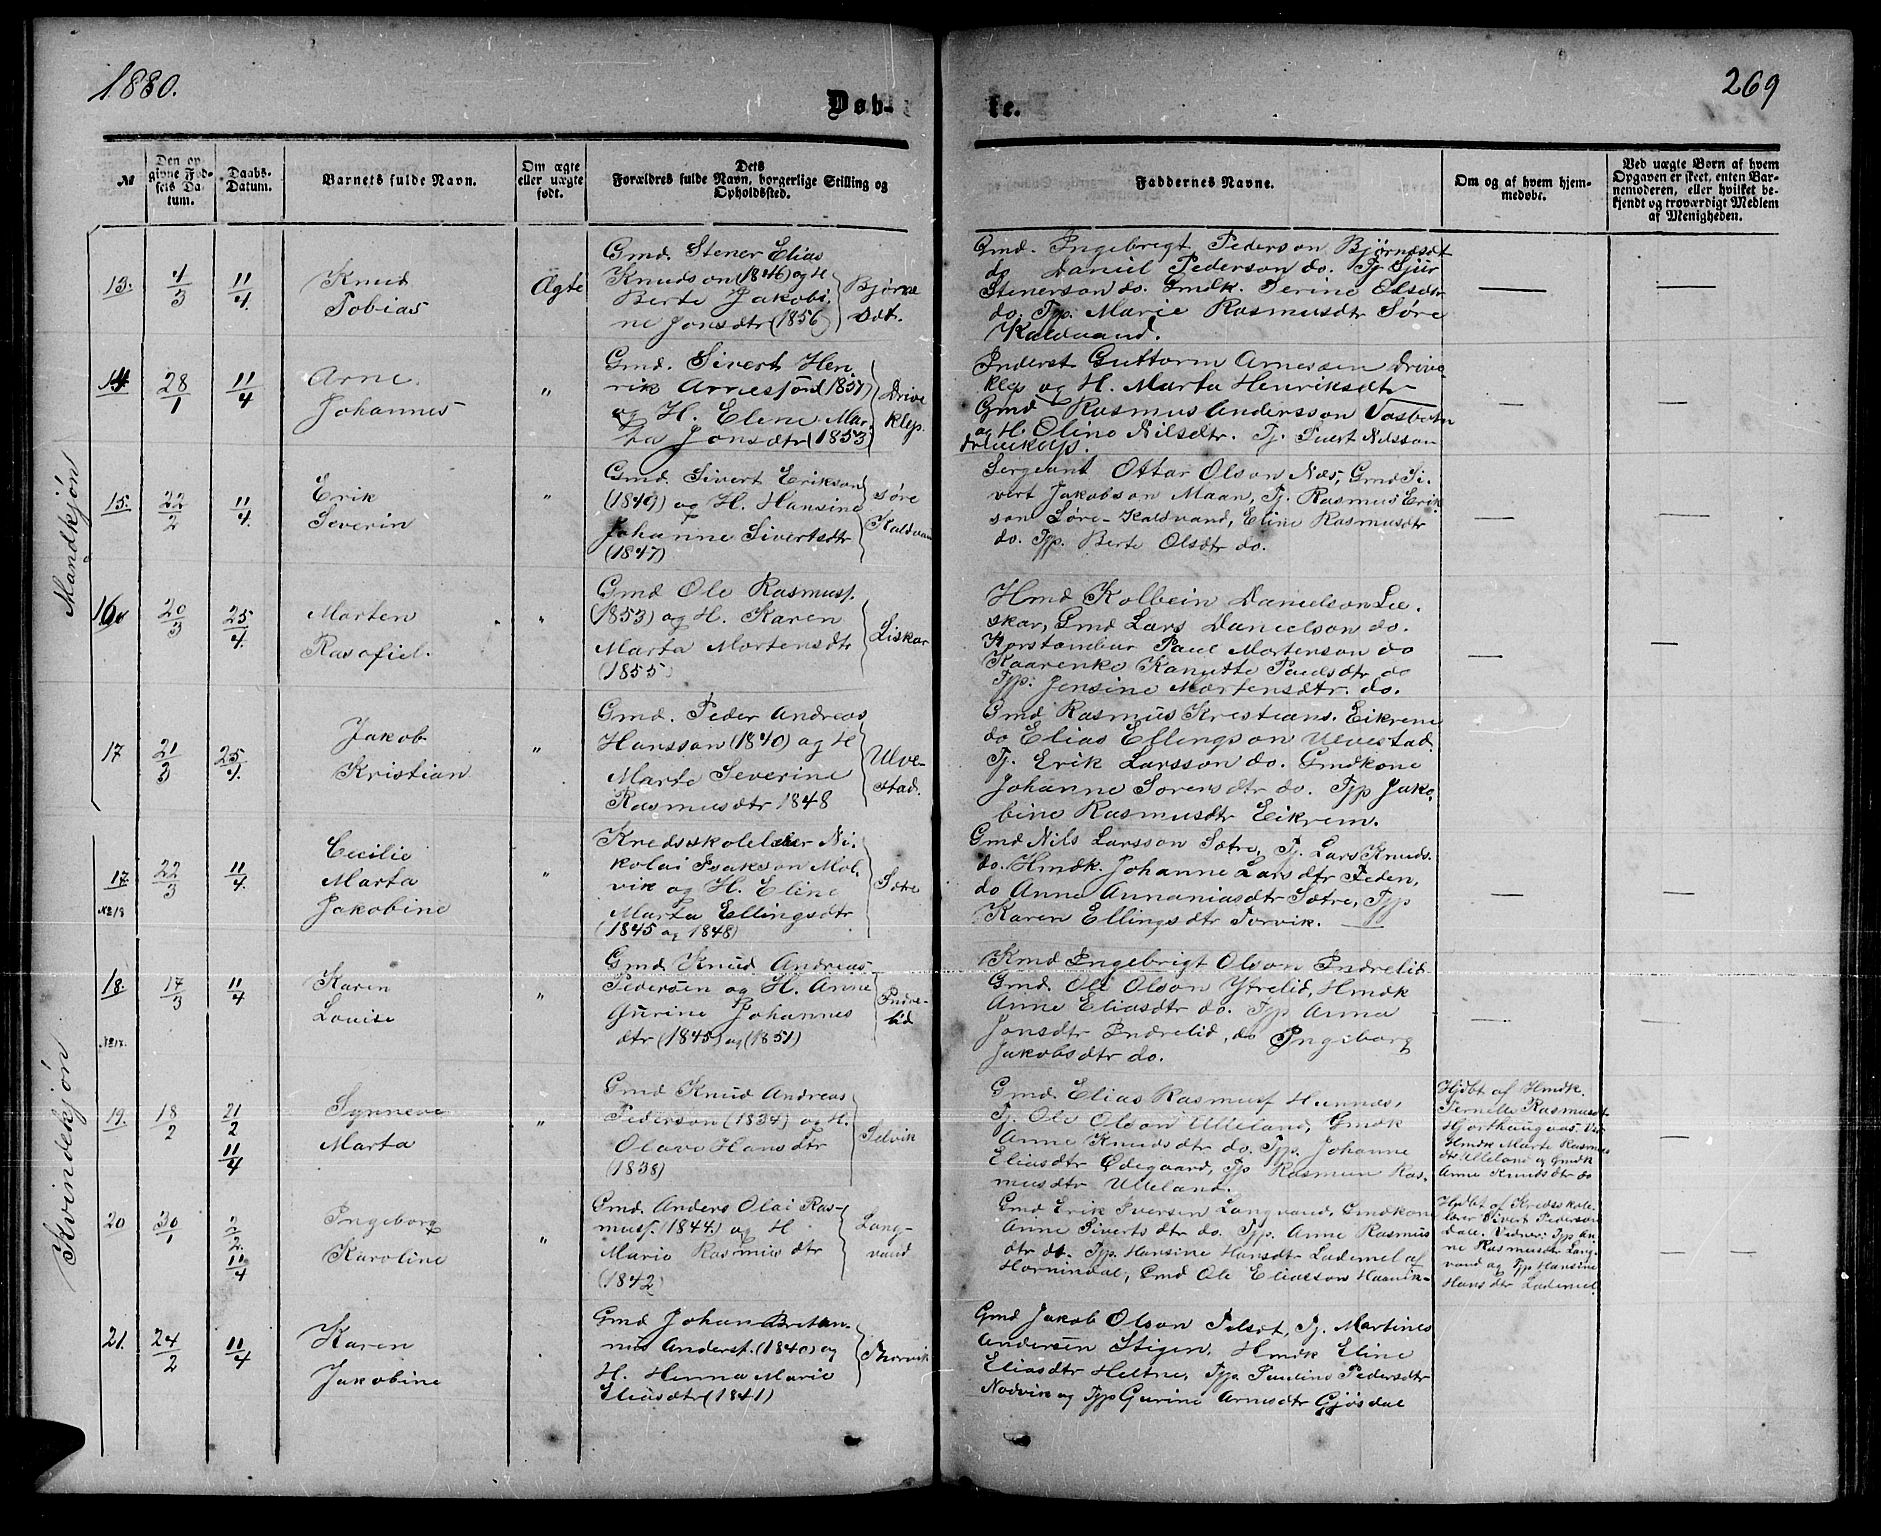 1880.
269
Døb-
te.
№
Den op
givne Fød-
sels Da-
tum.
Daabs-
Datum.
Barnets fulde Navn.
Om ægte
eller uægte
født.
Dets
Forældres fulde Navn, borgerlige Stilling og
Opholdssted.
Faddernes Navne.
Om og af hvem hjem-
medøbt.
Ved uægte Børn af hvem
Opgaven er skeet, enten Bar-
nemoderen, eller hvilket be-
kjendt og troværdigt Medlem
af Menigheden.
Mandkjøn
13. 4/3 11/4
Knud
Tobias
Ægte
Gmd. Stener Elias
Knudson (1846) og H
Berte Jakobi-
ne Jonsdtr (1856)
Bjørne
Sdt.
Gmd. Ingebrigt Pederson Bjørnesdt
do Daniel Pederson do. Tj Sjur
Stenerson do. Gmdk. Serine Olsdtr
do. Tjp. Marie Rasmusdtr Søre
Kaldvand.
14 28/1 11/4
Arne
Johannes
"
Gmd. Sivert Hen
rik Arnesson (1851)
og H. Elene Mar-
ta Jonsdtr (1853)
Drive
klep.
Inderst Guttorm Arnessen Drive-
klep og H. Marta Henriksdtr
Gmd Rasmus Andersson
og H. Oline Nilsdtr. Tj. Sivert Nilsson
15. 22/2 11/4
Erik
Severin
"
Gmd. Sivert Erikson
(1849) og H. Hansine
Johanne Sivertsdtr
(1847)
Søre
Kaldvan
Sergeant Ottar Olson Næs, Gmd Si-
vert Jakobson Maan, Tj. Rasmus Erik
son Søre-Kaldvand, Eline Rasmusdtr
do. Tjp. Berte Olsdtr do.
16 20/3 25/4
Morten
Rasofiel.
"
Gmd Ole Rasmuss.
(1853) og H. Karen
Marta Mortensdtr
(1855)
Liskar
Hmd Kolbein Danielson Lie-
skar, Gmd Lars Danielson do.
Paul Mortenson do
Kanutte Paulsdtr do
Tjp. Jensine Mortensdtr. do.
17 21/3 25/4
Jakob
Kristian
"
Gmd. Peder Andreas
Hansson (1840) og H
Marte Severine
Rasmusdtr 1848
Ulve-
stad.
Gmd Rasmus Kristians. Eikrem
do Elias Ellingson Ulvestad
Tj. Erik Larsson do. Gmdkone
Johanne Sorensdtr do. Tjp Jako-
bine Rasmusdtr Eikrem.
Kvindekjøn
17. 22/3 11/4
№ 18
Cecilie
Marta
Jakobine
"
Kredsskolelærer Ni-
kolai Isakson Mol-
vik og H. Eline
Marta Ellingsdtr
(1845 og 1848)
Sætre
Gmd Nils Larsson Sætre, Tj. Lars Knuds.
do. Hmdk. Johanne Larsdtr
do Anne Annaniasdtr Sætre, Tjp
Karen Ellingsdtr Torvik.
18. 17/3 11/4
Karen
Louise
"
Gmd Knud Andreas
Pedersen og H. Anne
Gurine Johannes
dtr (1845) og (1851)
Indre-
lid
Kmd Ingebrigt Olson Indrelid
Gmd. Ole Olson Ytrelid, Hmdk
Anne Eliasdtr do. Tjp Anna
Jonsdtr Indrelid, do Ingeborg
Jakobsdtr do.
19. 18/2 21/2 11/4
Synneve
Marta
"
Gmd Knud Andreas
Pederson (1834) og H.
Olave Hansdtr
(1838)
Selvik
Gmd. Elias Rasmuss Hunnes,
Tj. Ole Olson Ulleland, Gmdk
Anne Knudsdtr do. Tjp. Johanne
Eliasdtr Ødegaard, Tjp Rasmun Ras-
musdtr Ulleland.
Hjdbt af Hmdk.
Pernille Rasmusdt
Hjorthaugvas. Vid
Hmdk Marte Rasmus
dtr Ulleland og Gmdk
Anne Knudsdtr do
20 30/1 2/2 11/4
Ingeborg
Karoline
"
Gmd. Anders Olai Ras-
muss. (1844) og H
Marie Rasmusdtr
(1842)
Lang-
vand
Gmd Erik Iversen Langvand, Gmdkone
Anne Sivertsdtr do. Tjp. Anne Rasmus
dtr do. Tjp. Hansine Hansdtr Lademel af
Hornindal, Gmd Ole Eliasson Haavik-
Hjdbt af Kredsskole-
lærer Sivert Pederson
Dale. Vidner: Tjp An-
ne Rasmusdtr Lang-
vand og Tjp Hansine
Hansdtr Lademel.
21. 24/2 11/4
Karen
Jakobine
Gmd Johan Britan-
nus Anderss. (1840) og
H. Henna Marie
Eliasdtr (1841)
Thorvik
Gmd Jakob Olson Selsdt, Tj. Martines
Andersen Stigen, Hmdk Eline
Eliasdtr Heltne, Tjp. Pauline Pedersdtr
Nodvik og Tjp Gurine Arnesdtr Gjøsdal